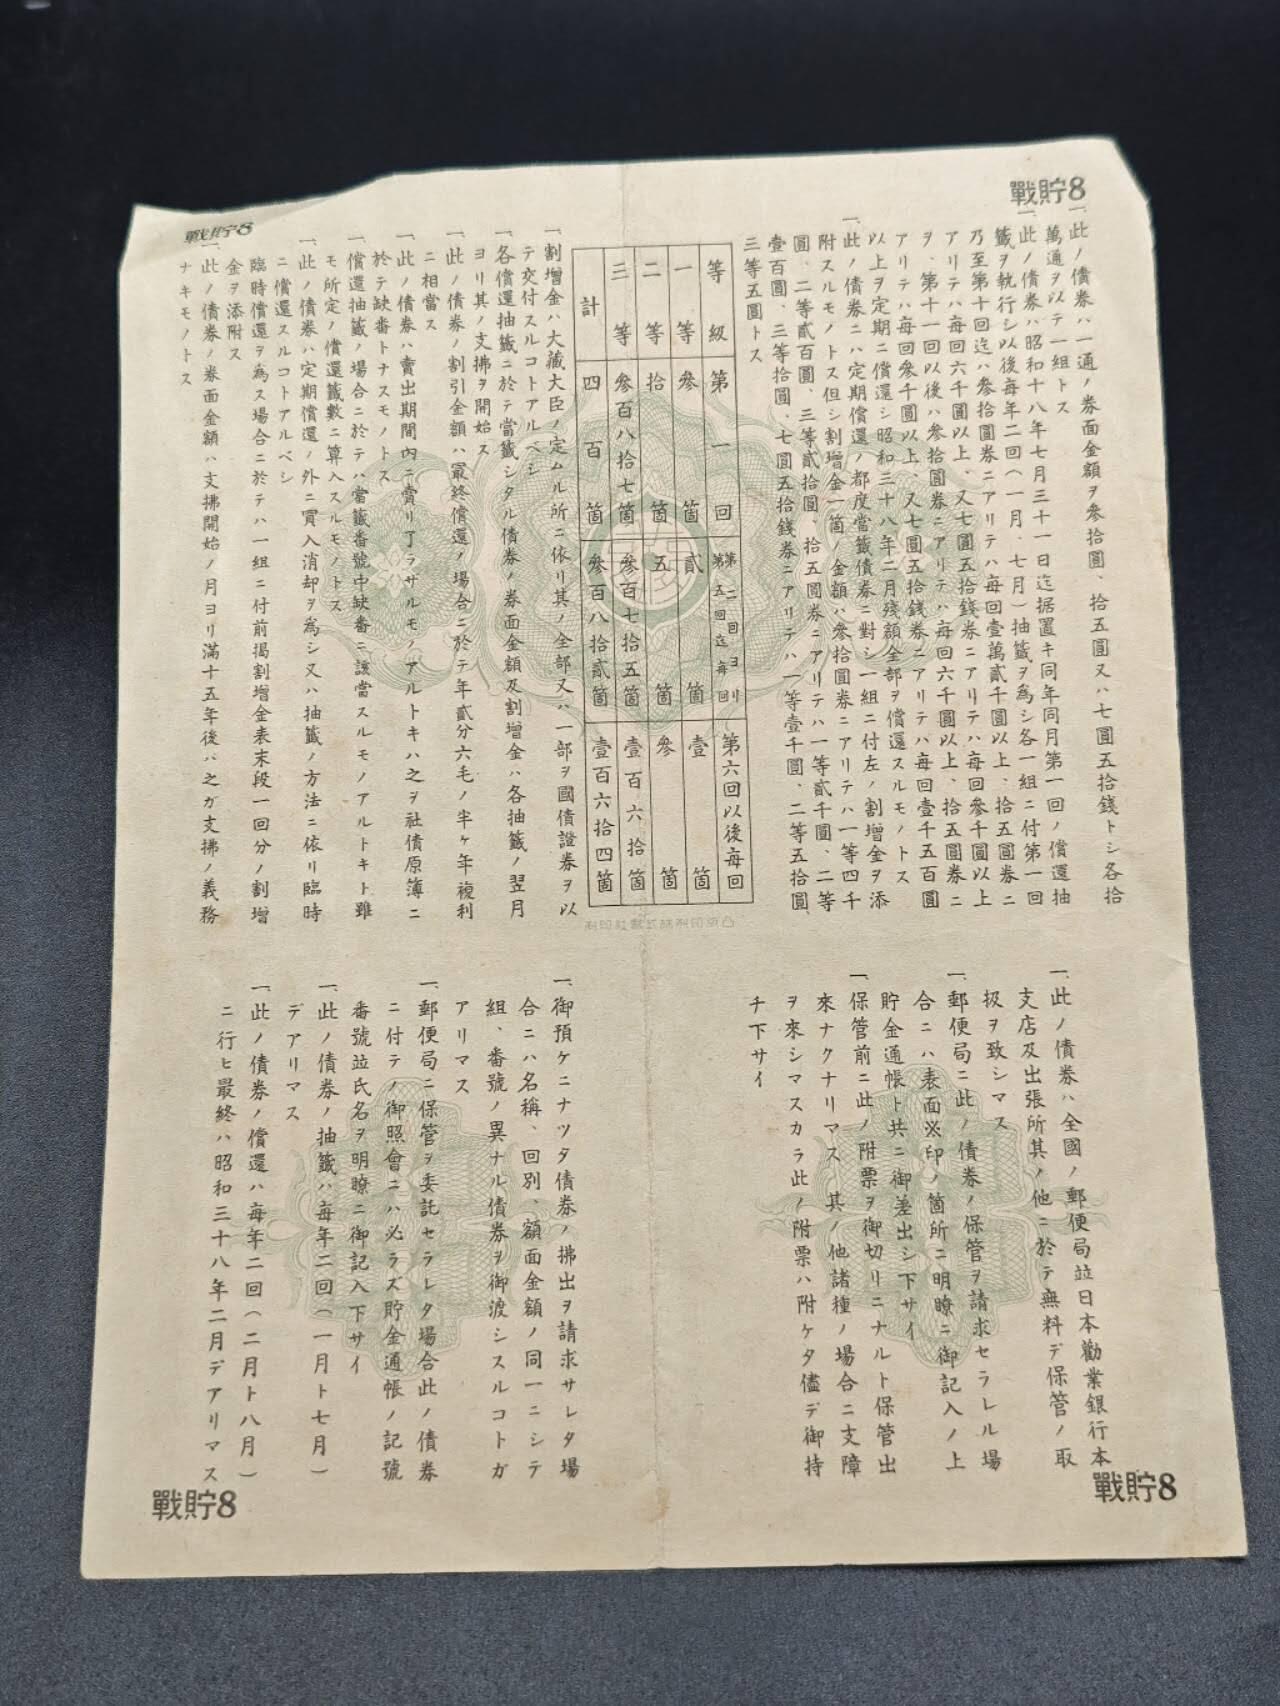 戰貯8
一、此ノ債券ハ一通ノ券面金額ヲ參拾圓、拾五圓又ハ七圓五拾錢トシ各拾
萬通ヲ以テ一組トス
一、此ノ債券ハ昭和十八年七月三十一日迄据置キ同年同月第一回ノ償還抽
籤ヲ執行シ以後每年二回(一月、七月)抽籤ヲ爲シ各一組ニ付第一回
乃至第十回迄ハ參拾圓券ニアリテハ每回壹萬貳千圓以上、拾五圓券ニ
アリテハ每回六千圓以上、又七圓五拾錢券ニアリテハ每回參千圓以上
ヲ、第十一回以後ハ參拾圓券ニアリテハ每回六千圓以上、拾五圓券ニ
アリテハ每回參千圓以上、又七圓五拾錢券ニアリテハ每回壹千五百圓
以上ヲ定期ニ償還シ昭和三十八年二月殘額全部ヲ償還スルモノトス
一、此ノ債券ニハ定期償還ノ都度當籤債券ニ對シ一組ニ付左ノ割增金ヲ添
附スルモノトス但シ割增金一箇ノ金額ハ參拾圓券ニアリテハ一等四千
圓、二等貳百圓、三等貳拾圓、拾五圓券ニアリテハ一等貳千圓、二等
壹百圓、三等拾圓、七圓五拾錢券ニアリテハ一等壹千圓、二等五拾圓
三等五圓トス
等級 第一回 第二回ヨリ第五回迄每回 第六回以後每回
一等 參箇 貳箇 壹箇
二等 拾箇 五箇 參箇
三等 參百八拾七箇 參百七拾五箇 壹百六拾箇
計 四百箇 參百八拾貳箇 壹百六拾四箇
凸版印刷株式會社印刷
一、割增金ハ大藏大臣ノ定ムル所ニ依リ其ノ全部又ハ一部ヲ國債證券ヲ以
テ交付スルコトアルベシ
一、各償還抽籤ニ於テ當籤シタル債券ノ券面金額及割增金ハ各抽籤ノ翌月
ヨリ其ノ支拂ヲ開始ス
一、此ノ債券ノ割引金額ハ最終償還ノ場合ニ於テ年貳分六毛ノ半ヶ年複利
ニ相當ス
一、此ノ債券ハ賣出期間內ニ賣リ了ラサルモノアルトキハ之ヲ社債原簿ニ
於テ缺番トナスモノトス
一、償還抽籤ノ場合ニ於テハ當籤番號中缺番ニ該當スルモノアルトキト雖
モ所定ノ償還籤數ニ算入スルモノトス
一、此ノ債券ハ定期償還ノ外ニ買入消却ヲ爲シ又ハ抽籤ノ方法ニ依リ臨時
ニ償還スルコトアルベシ
臨時償還ヲ爲ス場合ニ於テハ一組ニ付前揭割增金表末段一回分ノ割增
金ヲ添附ス
一、此ノ債券ノ券面金額ハ支拂開始ノ月ヨリ滿十五年後ハ之ガ支拂ノ義務
ナキモノトス
戰貯8
一、此ノ債券ハ全國ノ郵便局並日本勸業銀行本
支店及出張所其ノ他ニ於テ無料デ保管ノ取
扱ヲ致シマス
一、郵便局ニ此ノ債券ノ保管ヲ請求セラレル場
合ニハ表面※印ノ箇所ニ明瞭ニ御記入ノ上
貯金通帳ト共ニ御差出シ下サイ
一、保管前ニ此ノ附票ヲ御切リニナルト保管出
來ナクナリマス 其ノ他諸種ノ場合ニ支障
ヲ來シマスカラ此ノ附票ハ附ケタ儘デ御持
チ下サイ
戰貯8
一、御預ケニナツタ債券ノ拂出ヲ請求サレタ場
合ニハ名稱、回別、額面金額ノ同一ニシテ
組、番號ノ異ナル債券ヲ御渡シスルコトガ
アリマス
一、郵便局ニ保管ヲ委託セラレタ場合此ノ債券
ニ付テノ御照會ニハ必ラズ貯金通帳ノ記號
番號並氏名ヲ明瞭ニ御記入下サイ
一、此ノ債券ノ抽籤ハ每年二回(一月ト七月)
デアリマス
一、此ノ債券ノ償還ハ每年二回(二月ト八月)
ニ行ヒ最終ハ昭和三十八年二月デアリマス
戰貯8